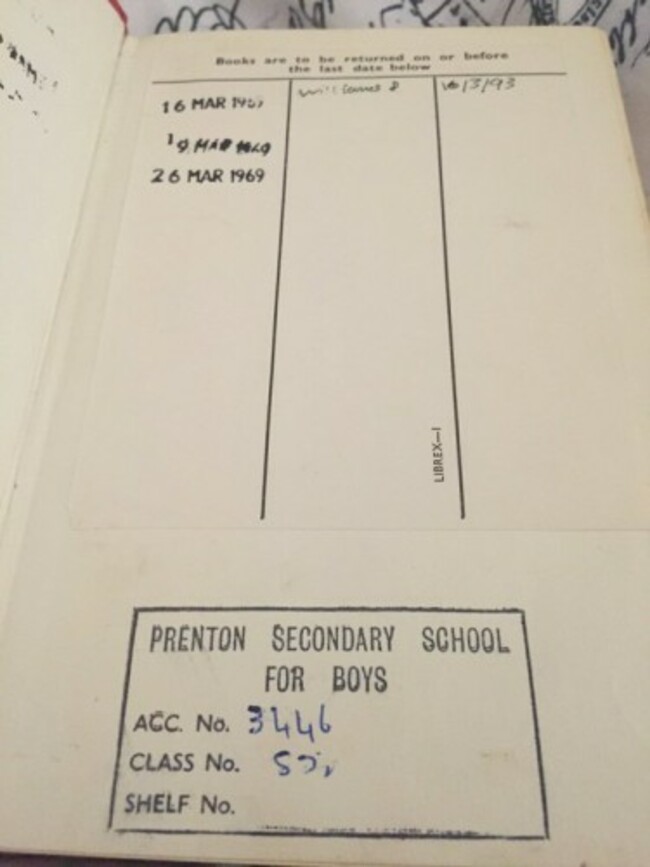 Books are to be returned on or before
the last date below
16 MAR
26 MAR 1969
Williams
/3/93
LIBREX—1
PRENTON SECONDARY SCHOOL
FOR BOYS
ACC. No. 3446
CLASS No.
SHELF No.